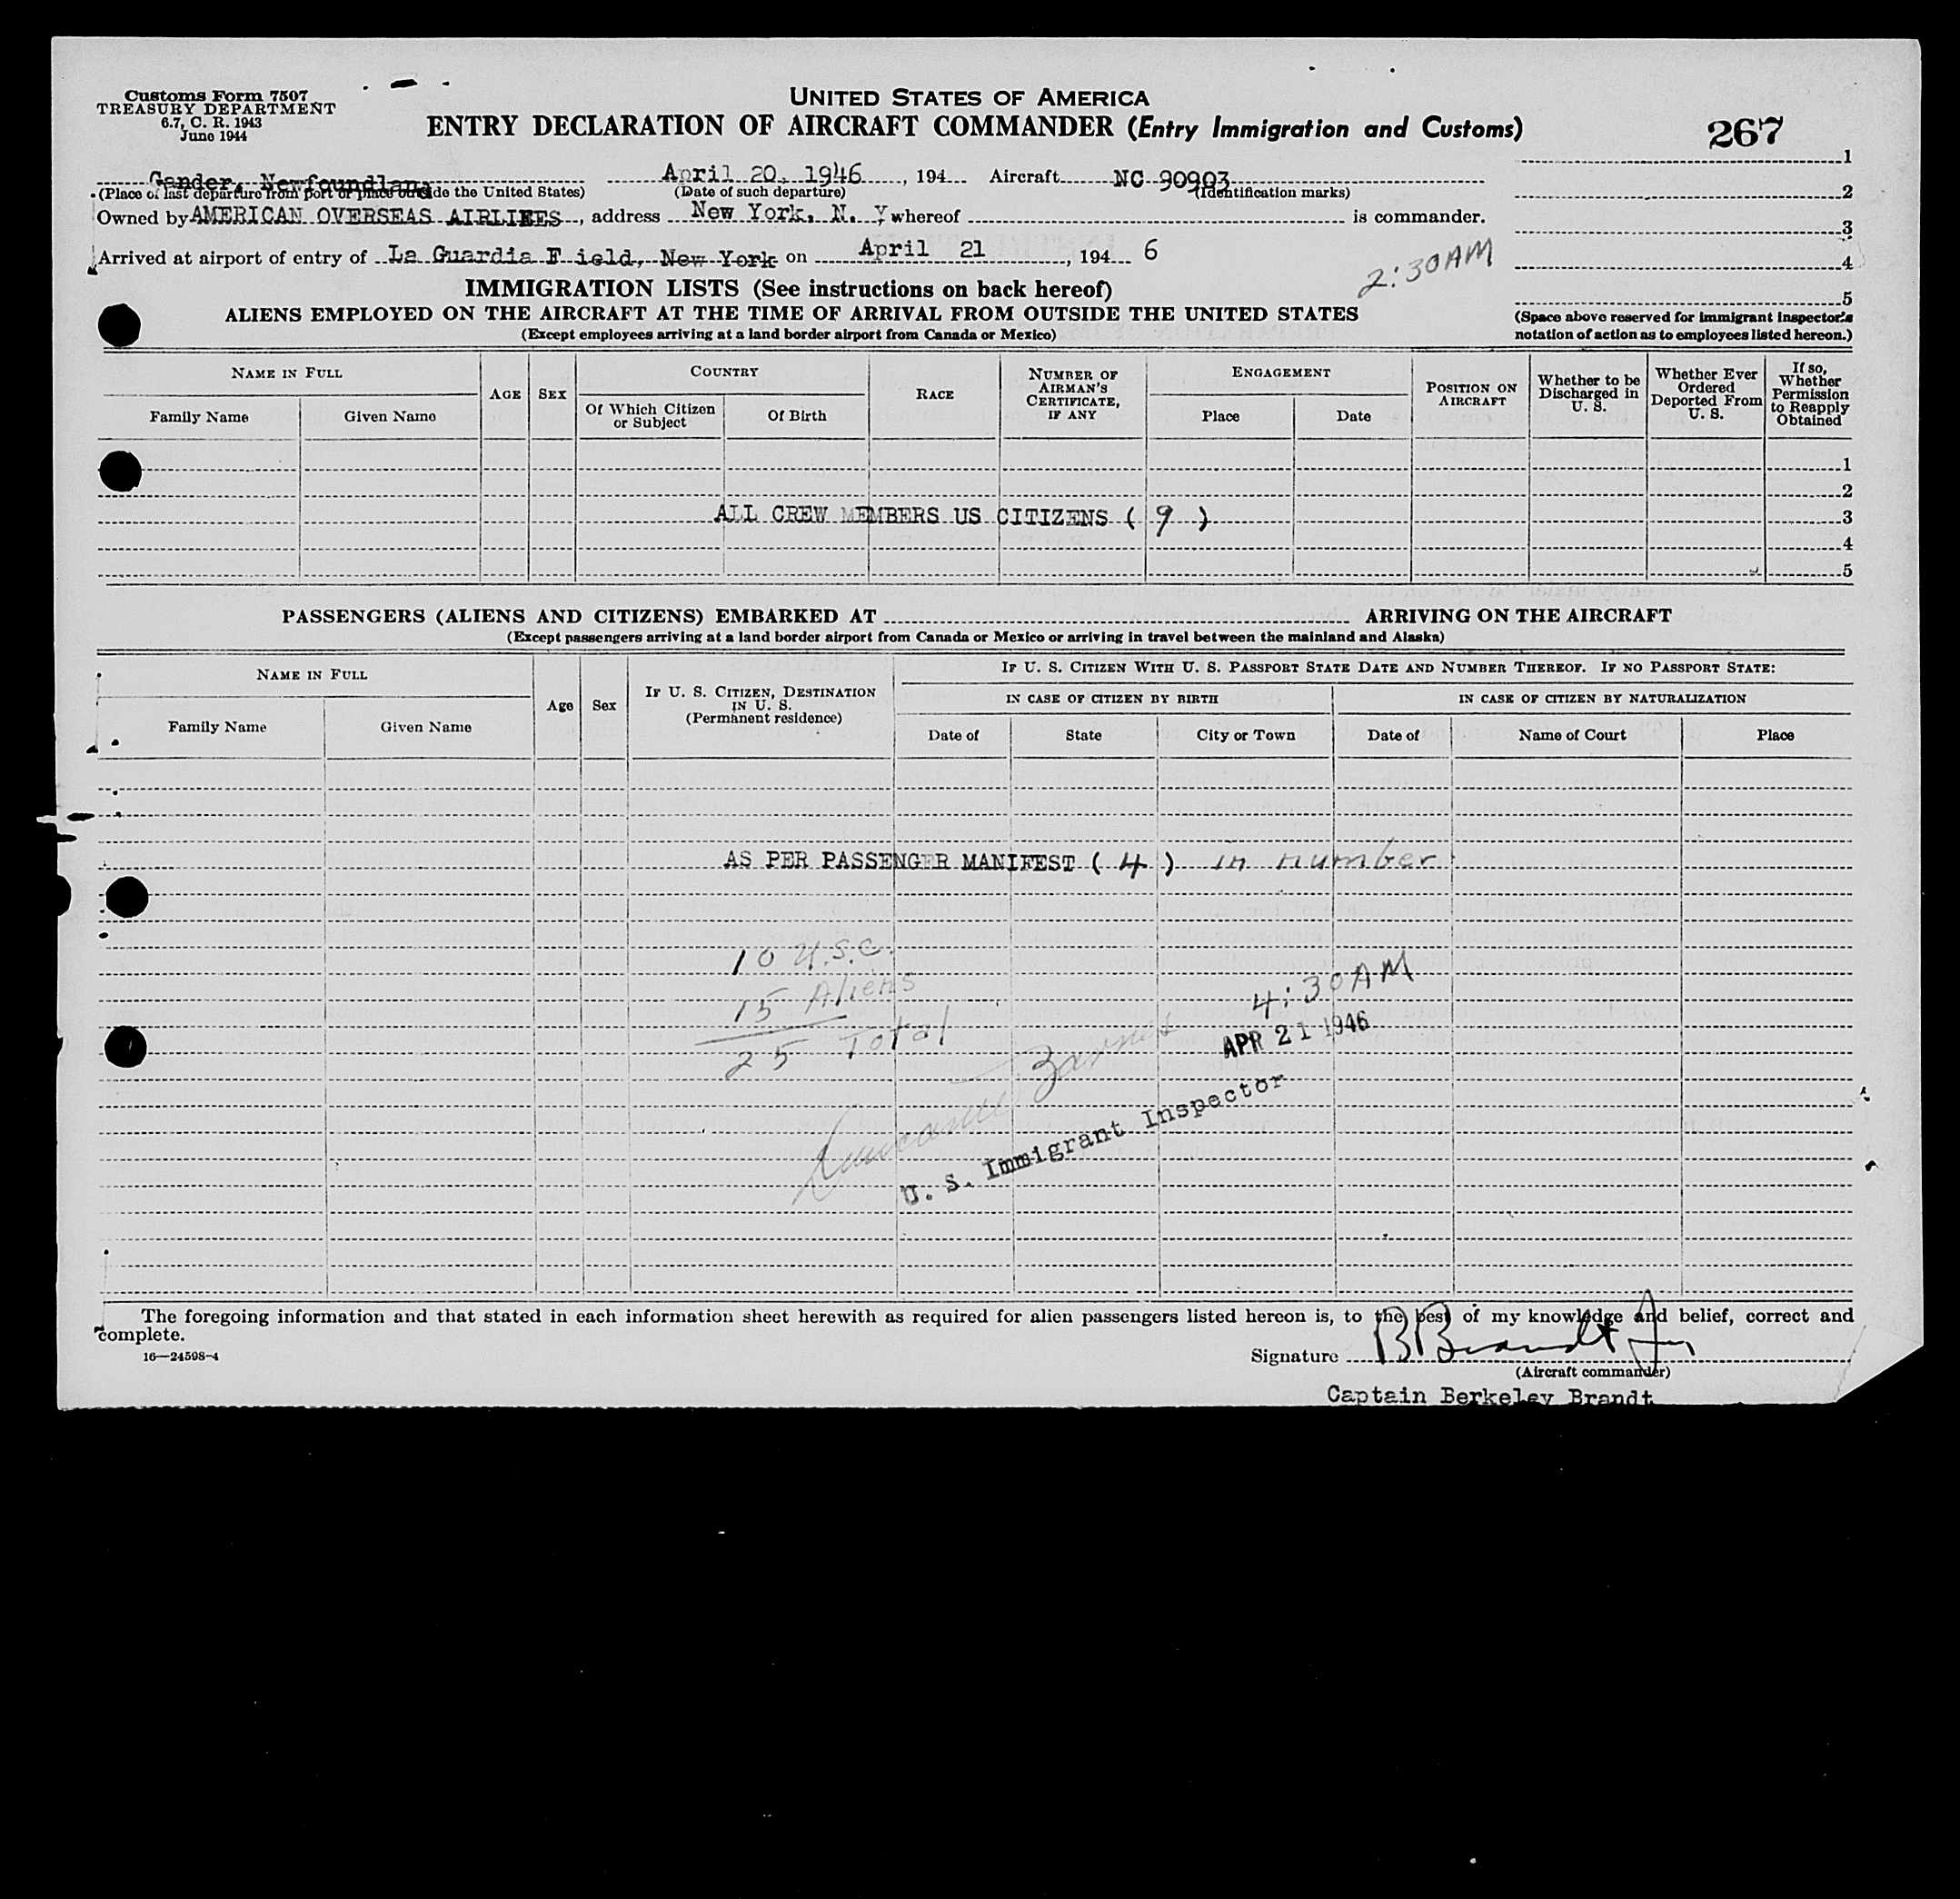 Customs Form 7507
TREASURY DEPARTMENT
6.7, C. R. 1943
June 1944
UNITED STATES OF AMERICA
ENTRY DECLARATION OF AIRCRAFT COMMANDER (Entry Immigration and Customs)
267
Gander, Newfoundland April 20, 1946, 194 Aircraft NC 90903
(Place of last departure from port or place outside the United States) (Date of such departure) (Identification marks)
Owned by AMERICAN OVERSEAS AIRLIEES, address New York, N. Y whereof is commander.
Arrived at airport of entry of La Guardia F ield, New York on April 21, 194 6
2:30AM
1
2
3
4
5
(Space above reserved for immigrant inspector's
notation of action as to employees listed hereon.)
IMMIGRATION LISTS (See instructions on back hereof)
ALIENS EMPLOYED ON THE AIRCRAFT AT THE TIME OF ARRIVAL FROM OUTSIDE THE UNITED STATES
(Except employees arriving at a land border airport from Canada or Mexico)
NAME IN FULL
Family Name Given Name
AGE SEX
COUNTRY
Of Which Citizen or Subject
Of Birth
RACE
NUMBER OF AIRMAN'S CERTIFICATE, IF ANY
ENGAGEMENT
Place Date
POSITION ON AIRCRAFT
Whether to be Discharged in U. S.
Whether Ever Ordered Deported From U. S.
If so, Whether Permission to Reapply Obtained
1
2
ALL CREW MEMBERS US CITIZENS ( 9 ) 3
4
5
PASSENGERS (ALIENS AND CITIZENS) EMBARKED AT ARRIVING ON THE AIRCRAFT
(Except passengers arriving at a land border airport from Canada or Mexico or arriving in travel between the mainland and Alaska)
NAME IN FULL
Family Name Given Name
Age Sex
IF U. S. CITIZEN, DESTINATION IN U. S. (Permanent residence)
IF U. S. CITIZEN WITH U. S. PASSPORT STATE DATE AND NUMBER THEREOF. IF NO PASSPORT STATE:
IN CASE OF CITIZEN BY BIRTH IN CASE OF CITIZEN BY NATURALIZATION
Date of State City or Town Date of Name of Court Place
AS PER PASSENGER MANIFEST ( 4 ) in number
10 U.S.C.
15 Aliens
25 Total
4:30AM
APR 21 1946
U. S. Immigrant Inspector
The foregoing information and that stated in each information sheet herewith as required for alien passengers listed hereon is, to the best of my knowledge and belief, correct and
complete.
16—24598-4
Signature B Brandt Jr
(Aircraft commander)
Captain Berkeley Brandt